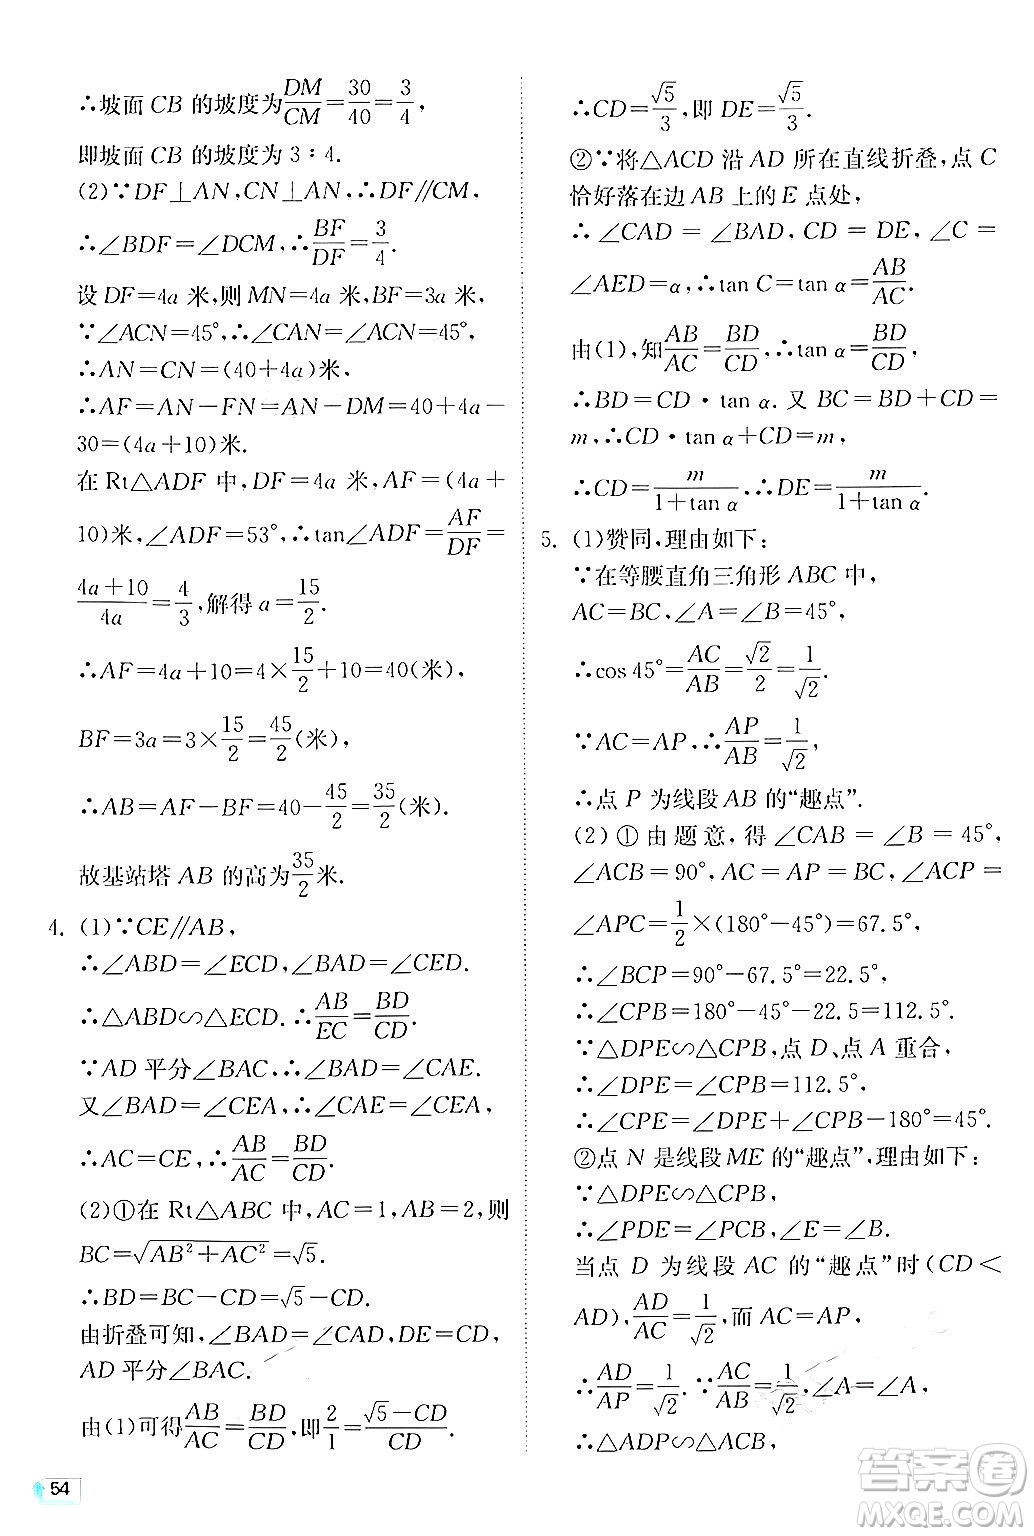 ∴坡面 CB 的坡度为DM/CM=30/40=3/4,
即坡面 CB 的坡度为 3∶4.
(2)∵DF⊥AN,CN⊥AN,∴DF∥CM,
∴∠BDF=∠DCM,∴BF/DF=3/4.
设 DF=4a 米,则 MN=4a 米,BF=3a 米,
∵∠ACN=45°,∴∠CAN=∠ACN=45°,
∴AN=CN=(40+4a)米,
∴AF=AN-FN=AN-DM=40+4a-
30=(4a+10)米.
在 Rt△ADF 中,DF=4a 米,AF=(4a+
10)米,∠ADF=53°,∴tan∠ADF=AF/DF=
(4a+10)/4a=4/3,解得 a=15/2.
∴AF=4a+10=4×15/2+10=40(米),
BF=3a=3×15/2=45/2(米),
∴AB=AF-BF=40-45/2=35/2(米).
故基站塔 AB 的高为35/2米.
4. (1)∵CE∥AB,
∴∠ABD=∠ECD,∠BAD=∠CED.
∴△ABD∽△ECD.∴AB/EC=BD/CD.
∵AD 平分∠BAC.∴∠BAD=∠CAE.
又∠BAD=∠CEA,∴∠CAE=∠CEA,
∴AC=CE,∴AB/AC=BD/CD.
(2)①在 Rt△ABC 中,AC=1,AB=2,则
BC=√(AB²+AC²)=√5.
∴BD=BC-CD=√5-CD.
由折叠可知,∠BAD=∠CAD,CD=DE,
AD 平分∠BAC.
由(1)可得AB/AC=BD/CD,即2/1=(√5-CD)/CD.
∴CD=√5/3,即 DE=√5/3.
②∵将△ACD 沿 AD 所在直线折叠,点 C
恰好落在边 AB 上的 E 点处,
∴∠CAD=∠BAD,CD=DE,∠C=
∠AED=α,∴tan C=tan α=AB/AC.
由(1),知AB/AC=BD/CD,∴tan α=BD/CD,
∴BD=CD·tan α.又 BC=BD+CD=
m,∴CD·tan α+CD=m,
∴CD=m/(1+tan α),∴DE=m/(1+tan α).
5. (1)赞同,理由如下:
∵在等腰直角三角形 ABC 中,
AC=BC,∠A=∠B=45°,
∴cos 45°=AC/AB=√2/2=1/√2.
∵AC=AP,∴AP/AB=1/√2,
∴点 P 为线段 AB 的“趣点”.
(2)①由题意,得∠CAB=∠B=45°,
∠ACB=90°,AC=AP=BC,∠ACP=
∠APC=1/2×(180°-45°)=67.5°,
∴∠BCP=90°-67.5°=22.5°,
∴∠CPB=180°-45°-22.5=112.5°.
∵△DPE∽△CPB,点 D、点 A 重合,
∴∠DPE=∠CPB=112.5°,
∴∠CPE=∠DPE+∠CPB-180°=45°.
②点 N 是线段 ME 的“趣点”,理由如下:
∵△DPE∽△CPB,
∴∠PDE=∠PCB,∠E=∠B.
当点 D 为线段 AC 的“趣点”时(CD<
AD),AD/AC=1/√2,而 AC=AP,
∴AD/AP=1/√2.∵AC/AB=1/√2,∠A=∠A,
∴△ADP∽△ACB,
54
答案圈
MXQE.COM